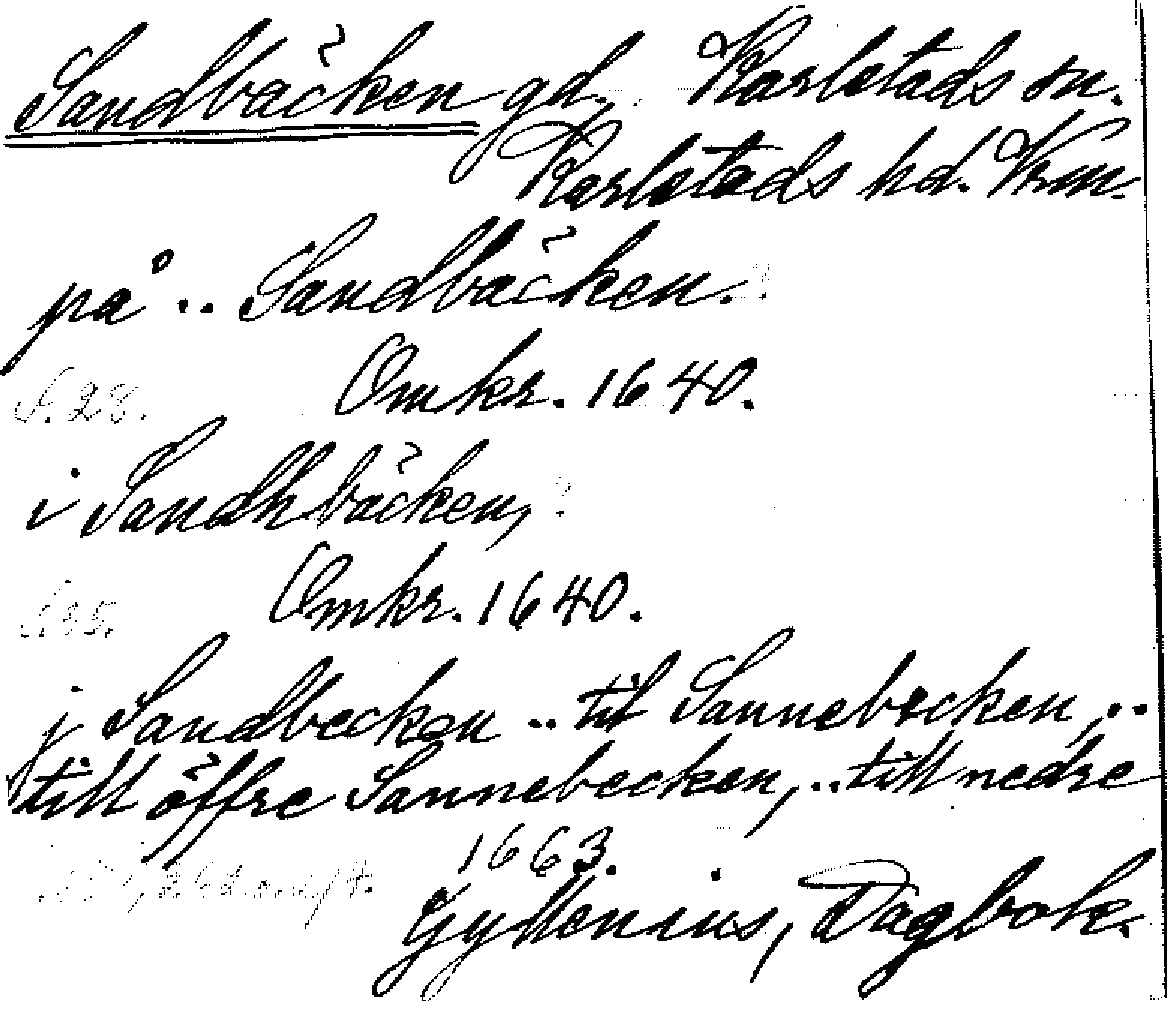 Sandbäcken gd, Karlstads sn.
Karlstads hd. Vrm.
på .. Sandbäcken.
S. 28. Omkr. 1640.
i Sandhbäcken,
S. 35. Omkr. 1640.
j Sandbecken .. til Sannebecken, ..
till öffre Sannebecken, .. till nedre
1663.
Gyllenius, Dagbok.